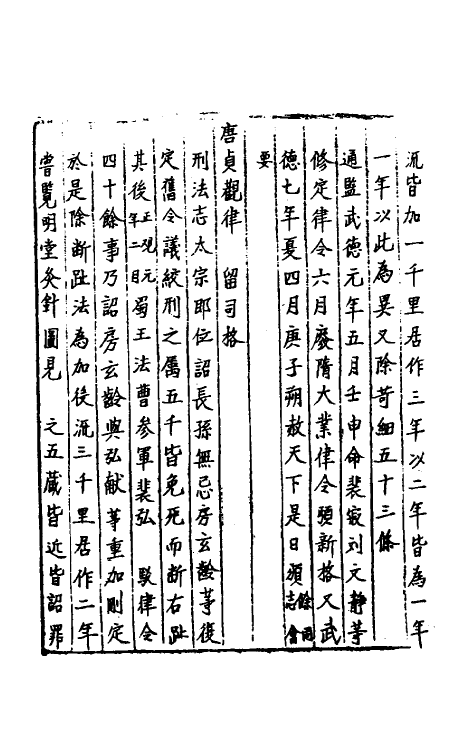 流皆加一千里居作三年以二年皆為一年
一年以此為異又除苛細五十三條
通監武德元年五月壬申命裴寂刘文靜等
修定律令六月廢隋大業律令頒新格又武
德七年夏四月庚子朔赦天下是日頒餘同志會
要
唐貞觀律 留司格
刑法志太宗即位詔長孫無忌房玄齡等復
定舊令議絞刑之屬五千皆免死而断右趾
其後正观元年二目蜀王法曹参軍裴弘 駁律令
四十餘事乃詔房玄齡與弘献等重加刪定
於是除断趾法為加役流三千里居作二年
嘗覧明堂灸針圖見 之五藏皆近皆詔罪